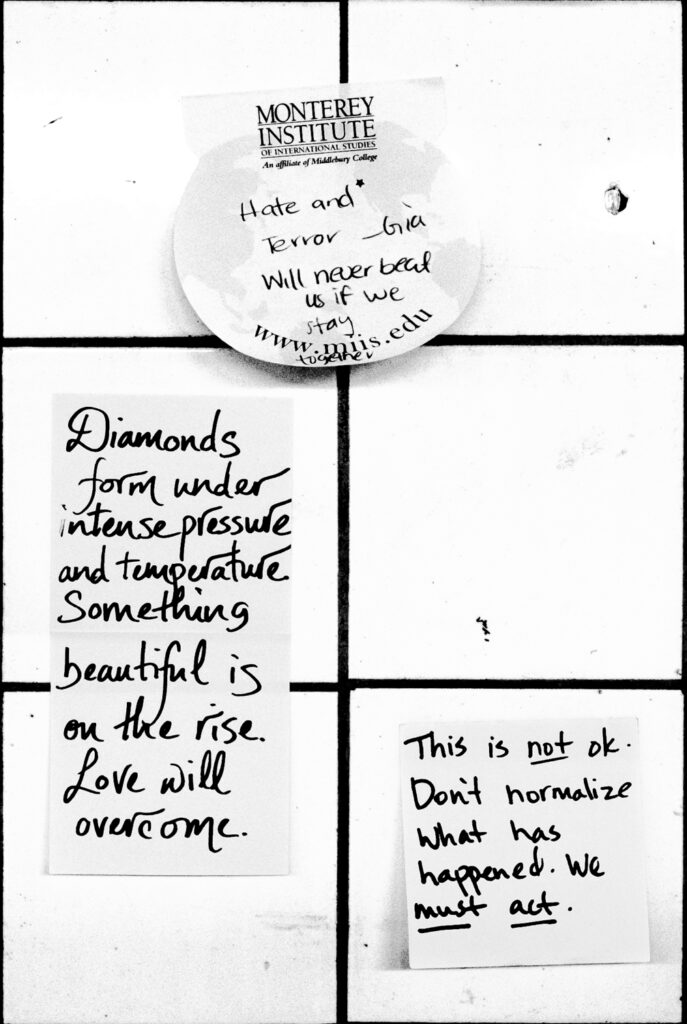 MONTEREY
INSTITUTE
OF INTERNATIONAL STUDIES
An affiliate of Middlebury College
Hate and
Terror -Gia
Will never beat
us if we
stay
www.miis.edu
together
Diamonds
form under
intense pressure
and temperature.
Something
beautiful is
on the rise.
Love will
overcome.
This is not ok.
Don't normalize
what has
happened. We
must act.